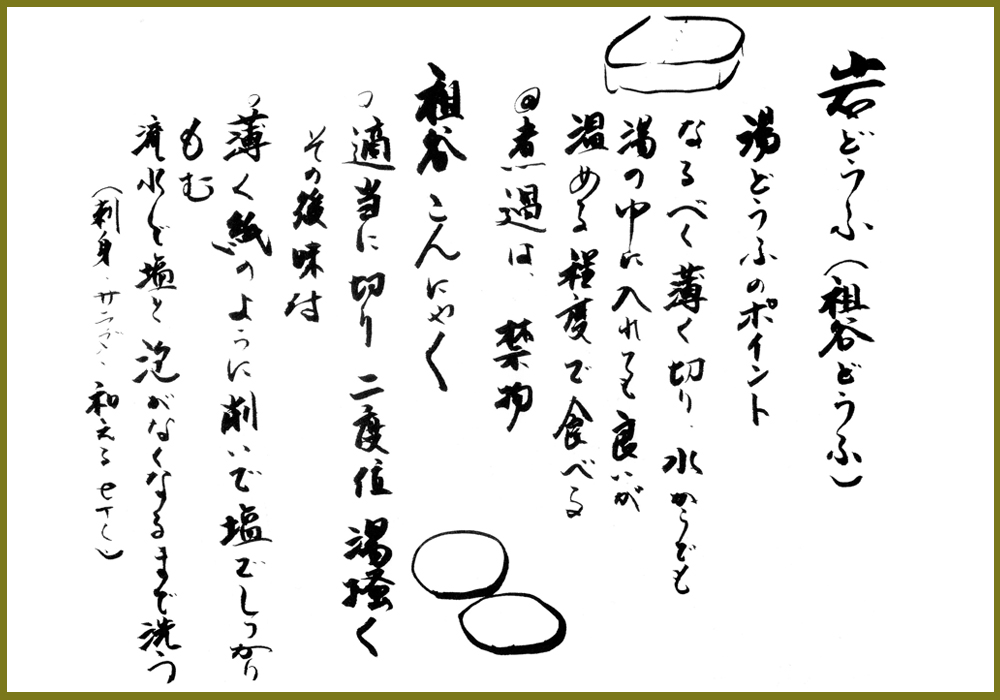 岩どうふ(祖谷どうふ)
湯どうふのポイント
なるべく薄く切り、水からでも
湯の中に入れても良いが
温める程度で食べる
◎煮過は、禁物
祖谷こんにゃく
○適当に切り二度位湯掻く
その後味付
○薄く紙のように削いで塩でしっかり
もむ
流水で塩と泡がなくなるまで洗う
(刺身、サラダ、和える